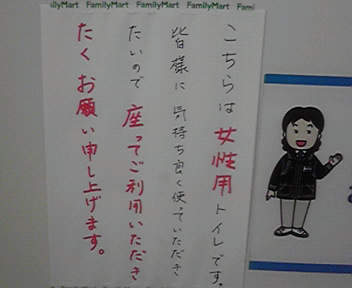 FamilyMart FamilyMart FamilyMart Fami
こちらは女性用トイレです。
皆様に気持ち良く使っていただき
たいので座ってご利用いただき
たくお願い申し上げます。